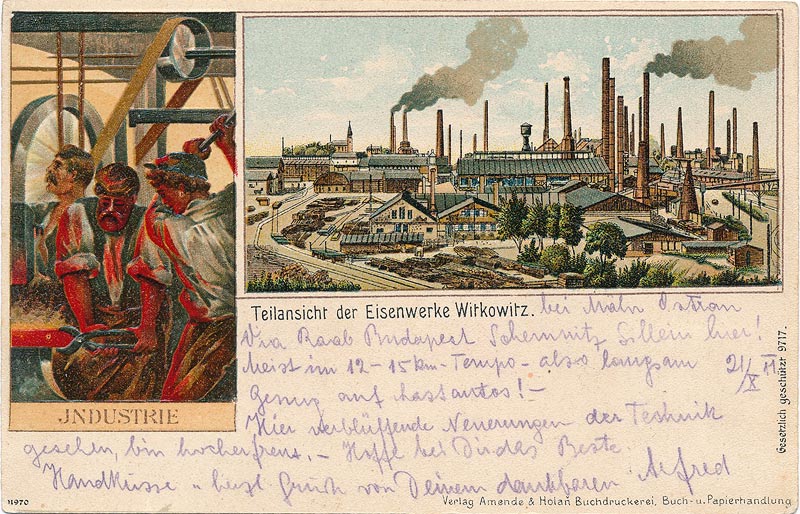 JNDUSTRIE
Teilansicht der Eisenwerke Witkowitz. bei Mähr Ostrau
Via Raab Budapest Schemnitz, Sillein hier!
Meist im 12-15 km-Tempo - also langsam 21/X
genug auf Lastautos! -
Hier verblüffende Neuerungen der Technik
gesehen, bin hocherfreut. - Hoffe bei Dir das Beste.
Handküsse u herzl Gruß von Deinem dankbaren Alfred
Gesetzlich geschützt 9717.
11970
Verlag Amende & Holan Buchdruckerei, Buch- u. Papierhandlung